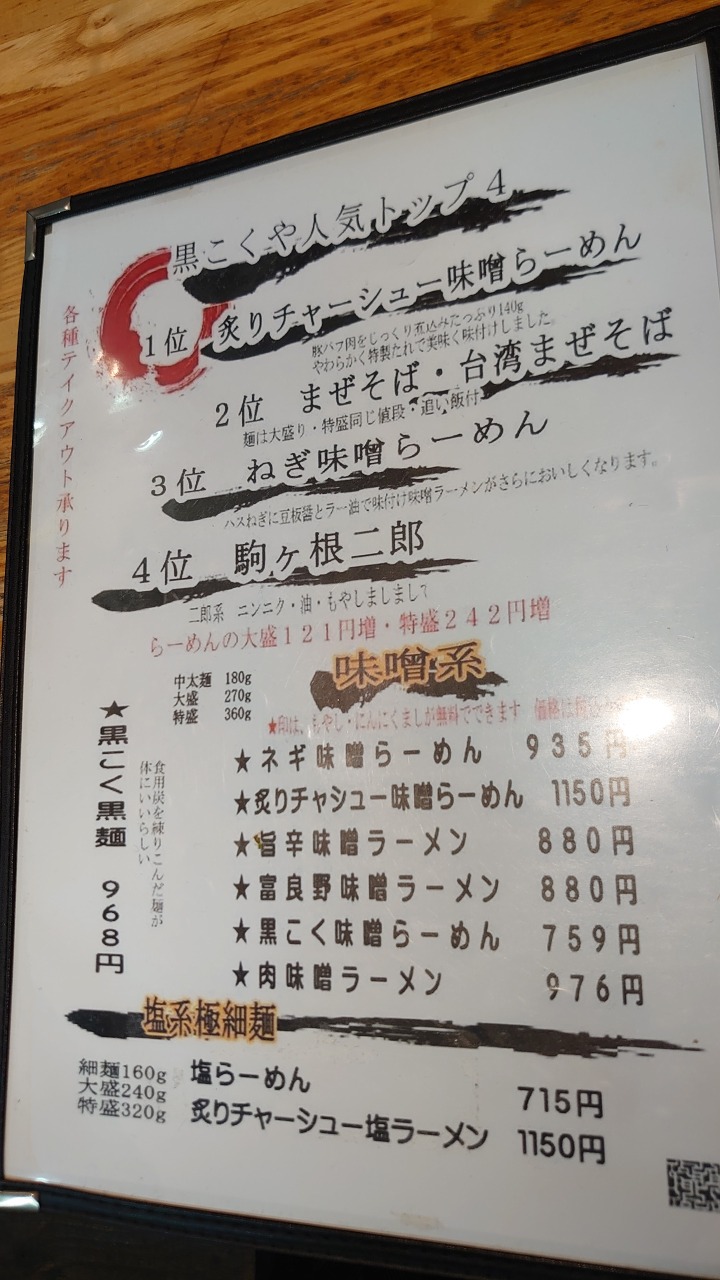 黒こくや人気トップ４
各種テイクアウト承ります
１位 炙りチャーシュー味噌らーめん
豚バラ肉をじっくり煮込みたっぷり140g
やわらかく特製たれで美味く味付けしました。
２位 まぜそば・台湾まぜそば
麺は大盛り・特盛同じ値段・追い飯付
３位 ねぎ味噌らーめん
ハスねぎに豆板醤とラー油で味付け味噌ラーメンがさらにおいしくなります。
４位 駒ヶ根二郎
二郎系 ニンニク・油・もやしましまして
らーめんの大盛１２１円増・特盛２４２円増
味噌系
中太麺 180g
大盛 270g
特盛 360g
★印は、もやし・にんにくましが無料でできます 価格は税込
★ネギ味噌らーめん ９３５円
★炙りチャシュー味噌らーめん 1150円
★旨辛味噌ラーメン ８８０円
★富良野味噌ラーメン ８８０円
★黒こく味噌らーめん ７５９円
★肉味噌ラーメン ９７６円
★黒こく黒麺 ９６８円
食用炭を練りこんだ麺が
体にいいらしい
塩系極細麺
細麺160g
大盛240g
特盛320g
塩らーめん 715円
炙りチャーシュー塩ラーメン 1150円